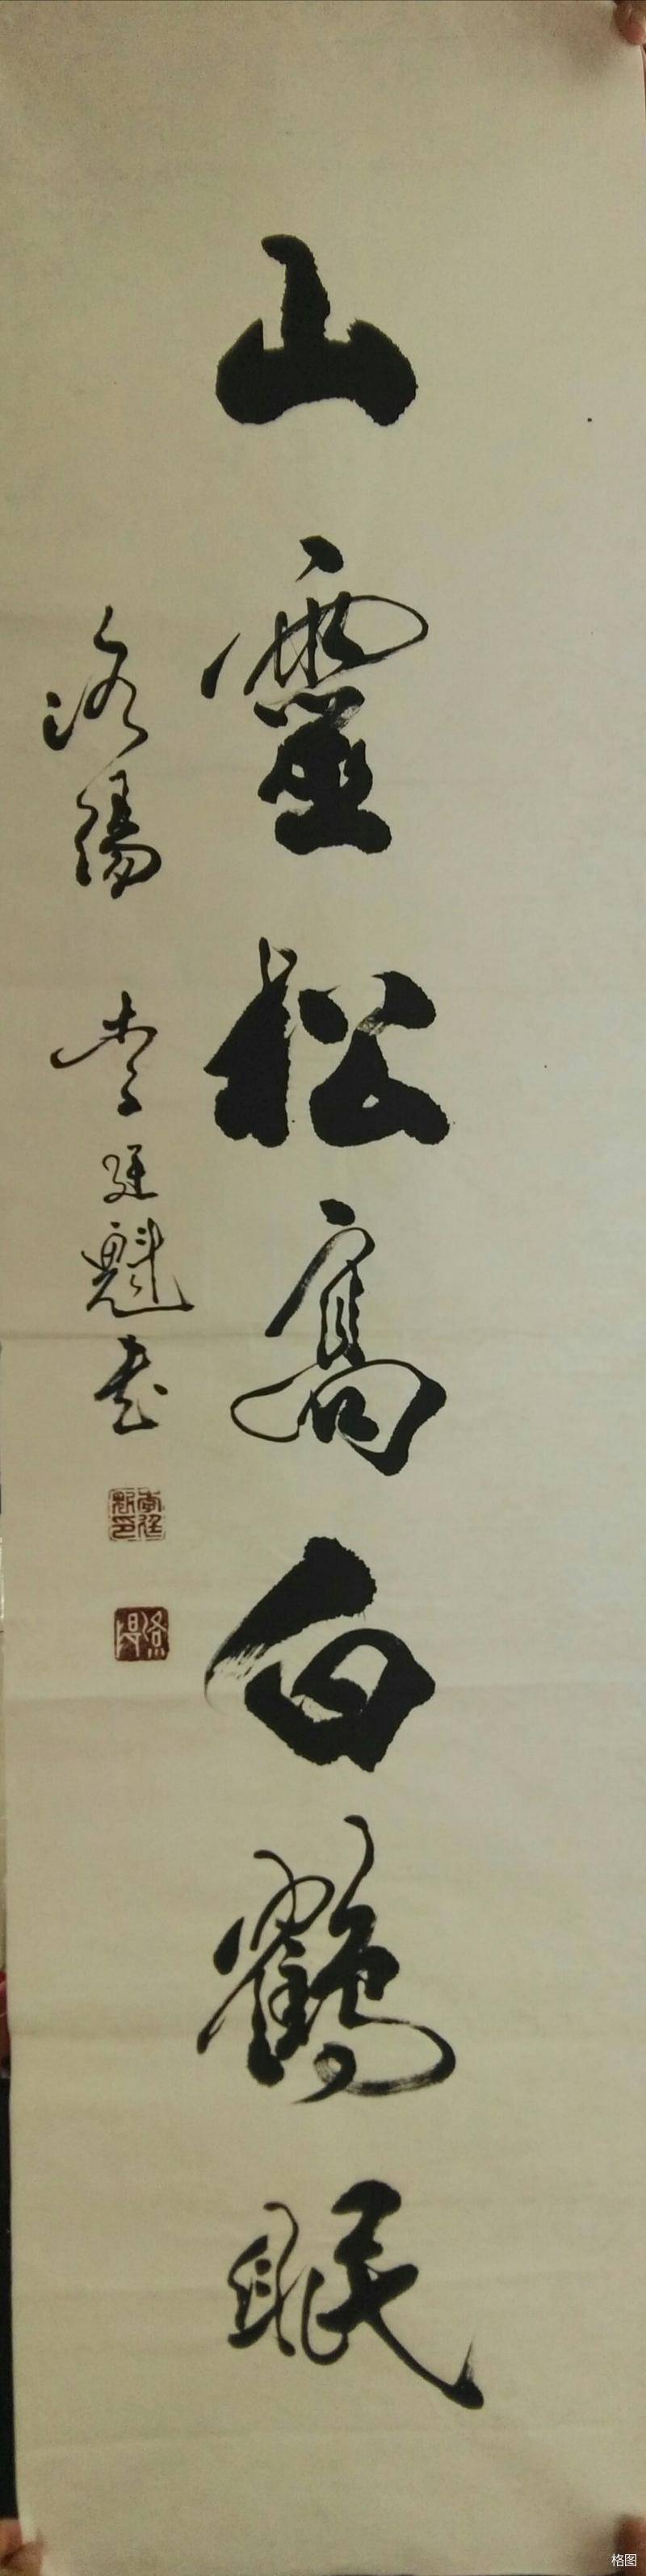 山靈松高白鶴眠
洛陽 李廷魁书
格图